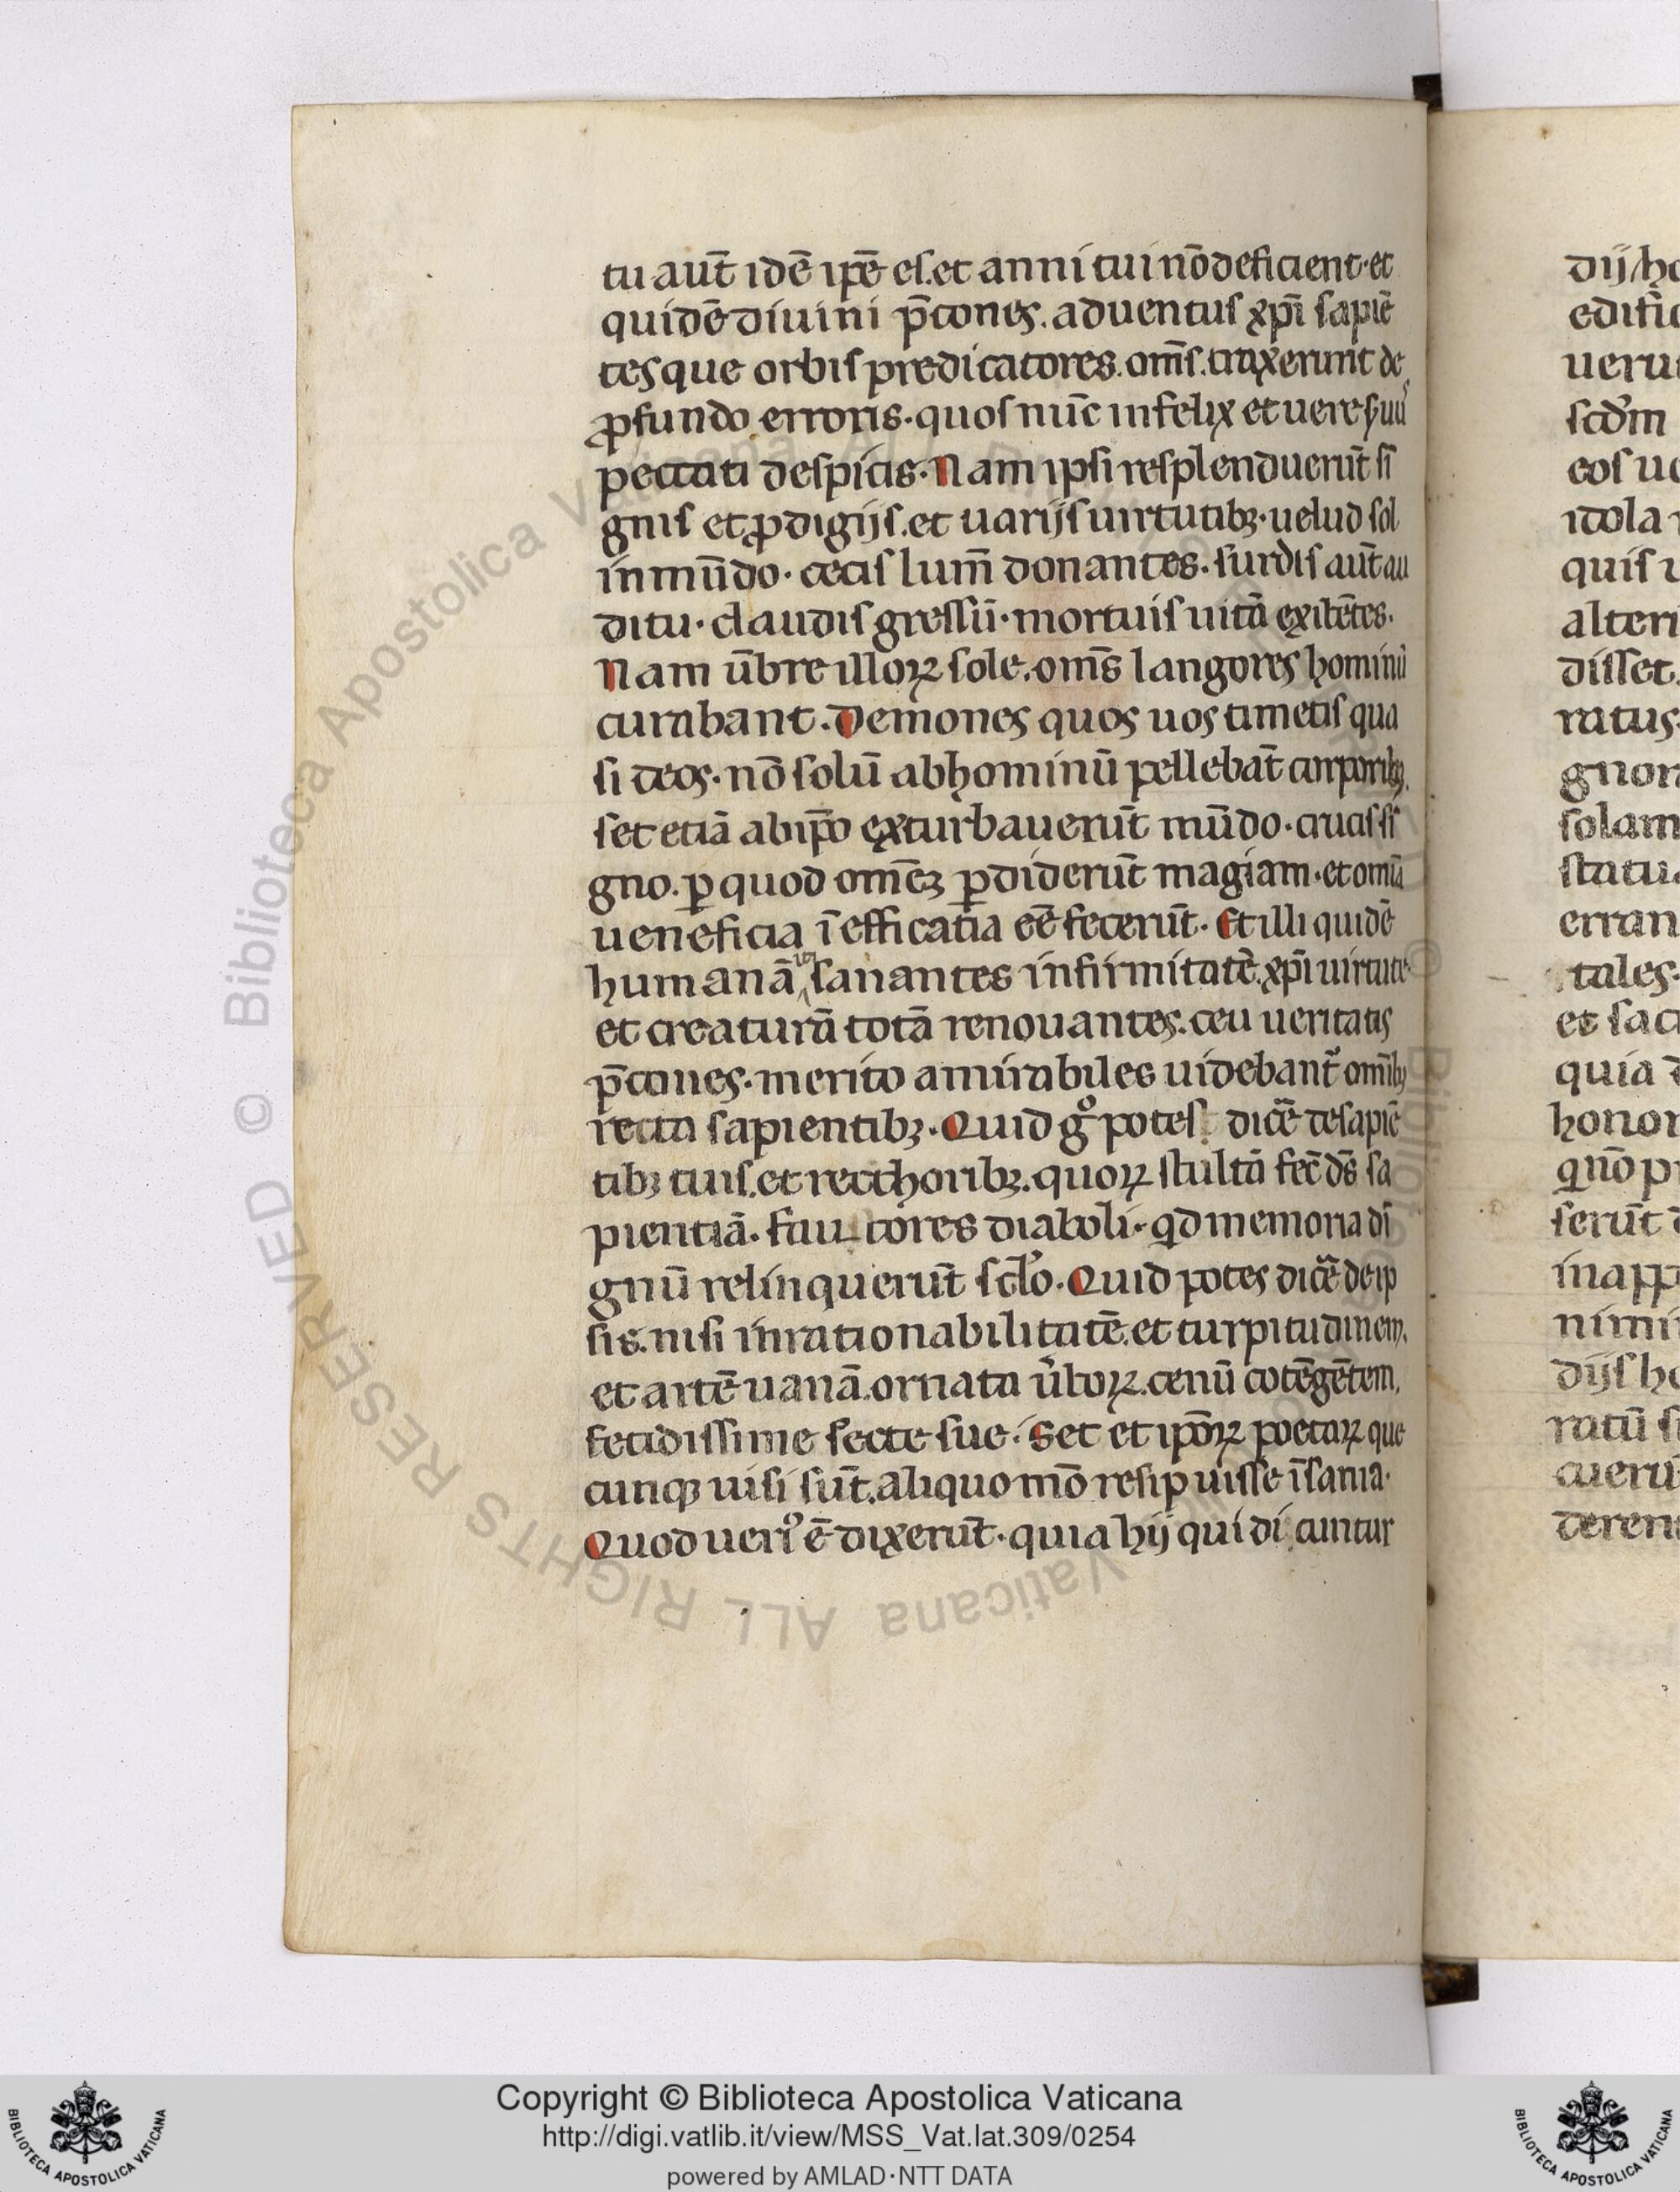 tu aut̄ idē ip̄e es.et anni tui nōdeficient.et
quidē diuini p̄cones.aduentus xp̄i sapiē
tesque orbis predicatores.om̄s.traxerunt de
ꝓfundo erroris.quos nūc infelix et uere ẜuus
peccati despicis.Nam ipsi resplenduerūt si
gnis et ꝓdigijs.et uarijs uirtutibꝫ.uelud sol
in mūdo.cecis lum̄ donantes.surdis aut̄ au
ditu.claudis gressū.mortuis uitā exibētes.
Nam ūbre illoꝝ sole.om̄s langores hominū
curabant.Demones quos uos timetis qua
si deos.nō solū ab hominū pellebāt corporibꝫ.
set etiā ab ip̄o exturbauerūt mūdo.crucis si
gno.ꝑ quod om̄eꝫ ꝑdiderūt magiam.et omīa
ueneficia īefficatia eē fecerūt.Et illi quidē
humanā sanantes infirmitatē.xp̄i uirtute
et creaturā totā renouantes.ceu ueritatis
p̄cones.merito amirabiles uidebant᷑ omībꝫ
recta sapientibꝫ.Quid gͦ potes dicē de sapiē
tibꝫ tuis.et recthoribꝫ.quoꝝ stultā fec̄ ds̄ sa
pientiā.fautores diaboli.qd memoria di
gnū relinquerūt sclo.Quid potes dicē de ip
sis.nisi inrationabilitatē.et turpitudinem.
et artē uanā.ornata ūboꝝ.cenū cotēgētem.
fetidissime secte sue.Set et ip̄oꝝ poetaꝝ que
cunqꝫ uisi sūt.aliquo mō resipuisse īsania.
Quod uerꝰ ē dixerūt.quia hij qui dicuntur
dij/ho
edific
ueru
scd̄m
eos ue
idola
quis
alteri
disset.
ratus.
gnor
solam
statu
erran
tales.
et sac
quia
honor
qn̄o p
serūt
inapp
nimi
dijs ho
ratū
cieru
deren
Copyright © Biblioteca Apostolica Vaticana
http://digi.vatlib.it/view/MSS_Vat.lat.309/0254
powered by AMLAD·NTT DATA
BIBLIOTECA APOSTOLICA VATICANA
BIBLIOTECA APOSTOLICA VATICANA
© Biblioteca Apostolica Vaticana ALL RIGHTS RESERVED